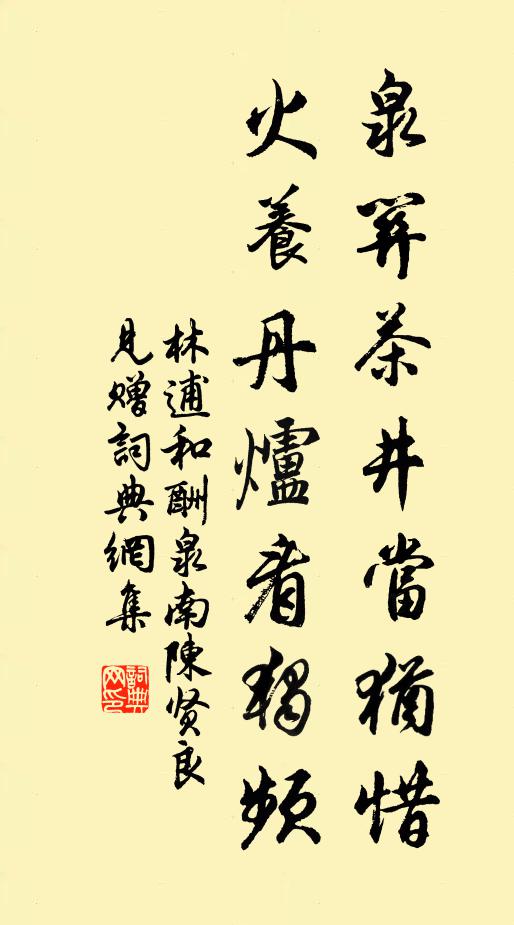 泉開茶井當猶惜
火養丹爐看獨頻
林逋和酬泉南陳贤良
見贈詞典網集
詞典
网印